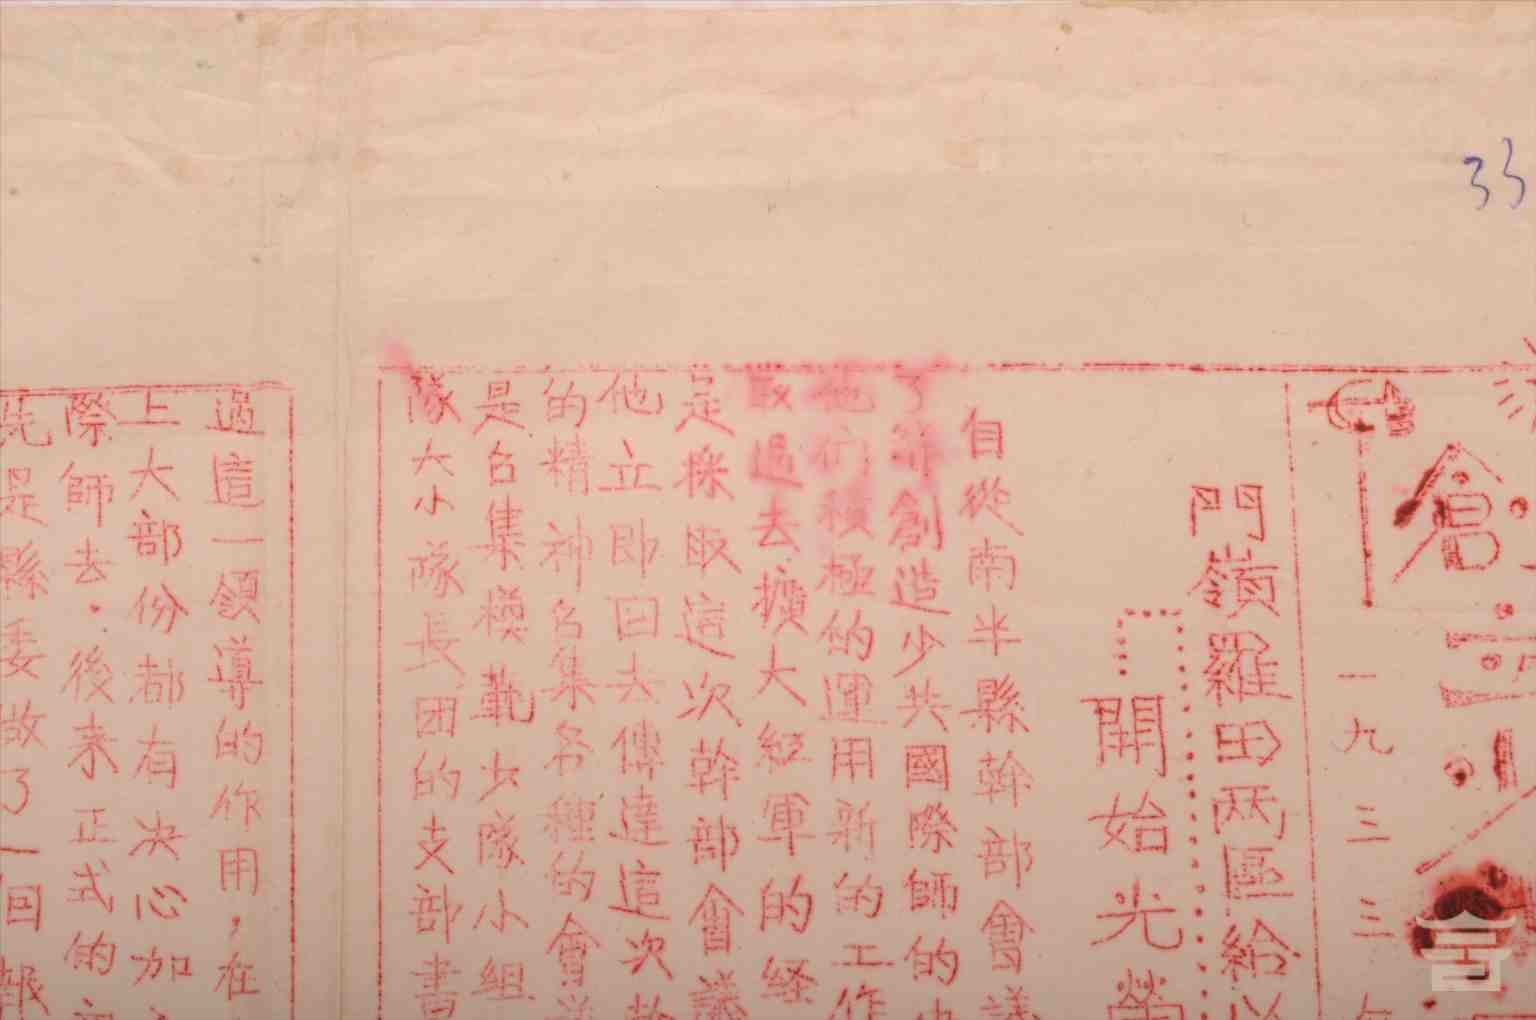 33
創
一九三三年
門嶺羅田两區給以
開始光榮
自從南半縣幹部會議
了 創造少共國際師的
他们積極的運用新的工作
取過去擴大紅軍的的经
是採取這次幹部會議
他立即回去傳達這次
的精神召集各種的會議
是召集模範少隊小組
隊大小隊長团的支部書
過這一領導的作用，在
上大部份都有决心加
際師去。後来正式的
先是縣委做了一回報